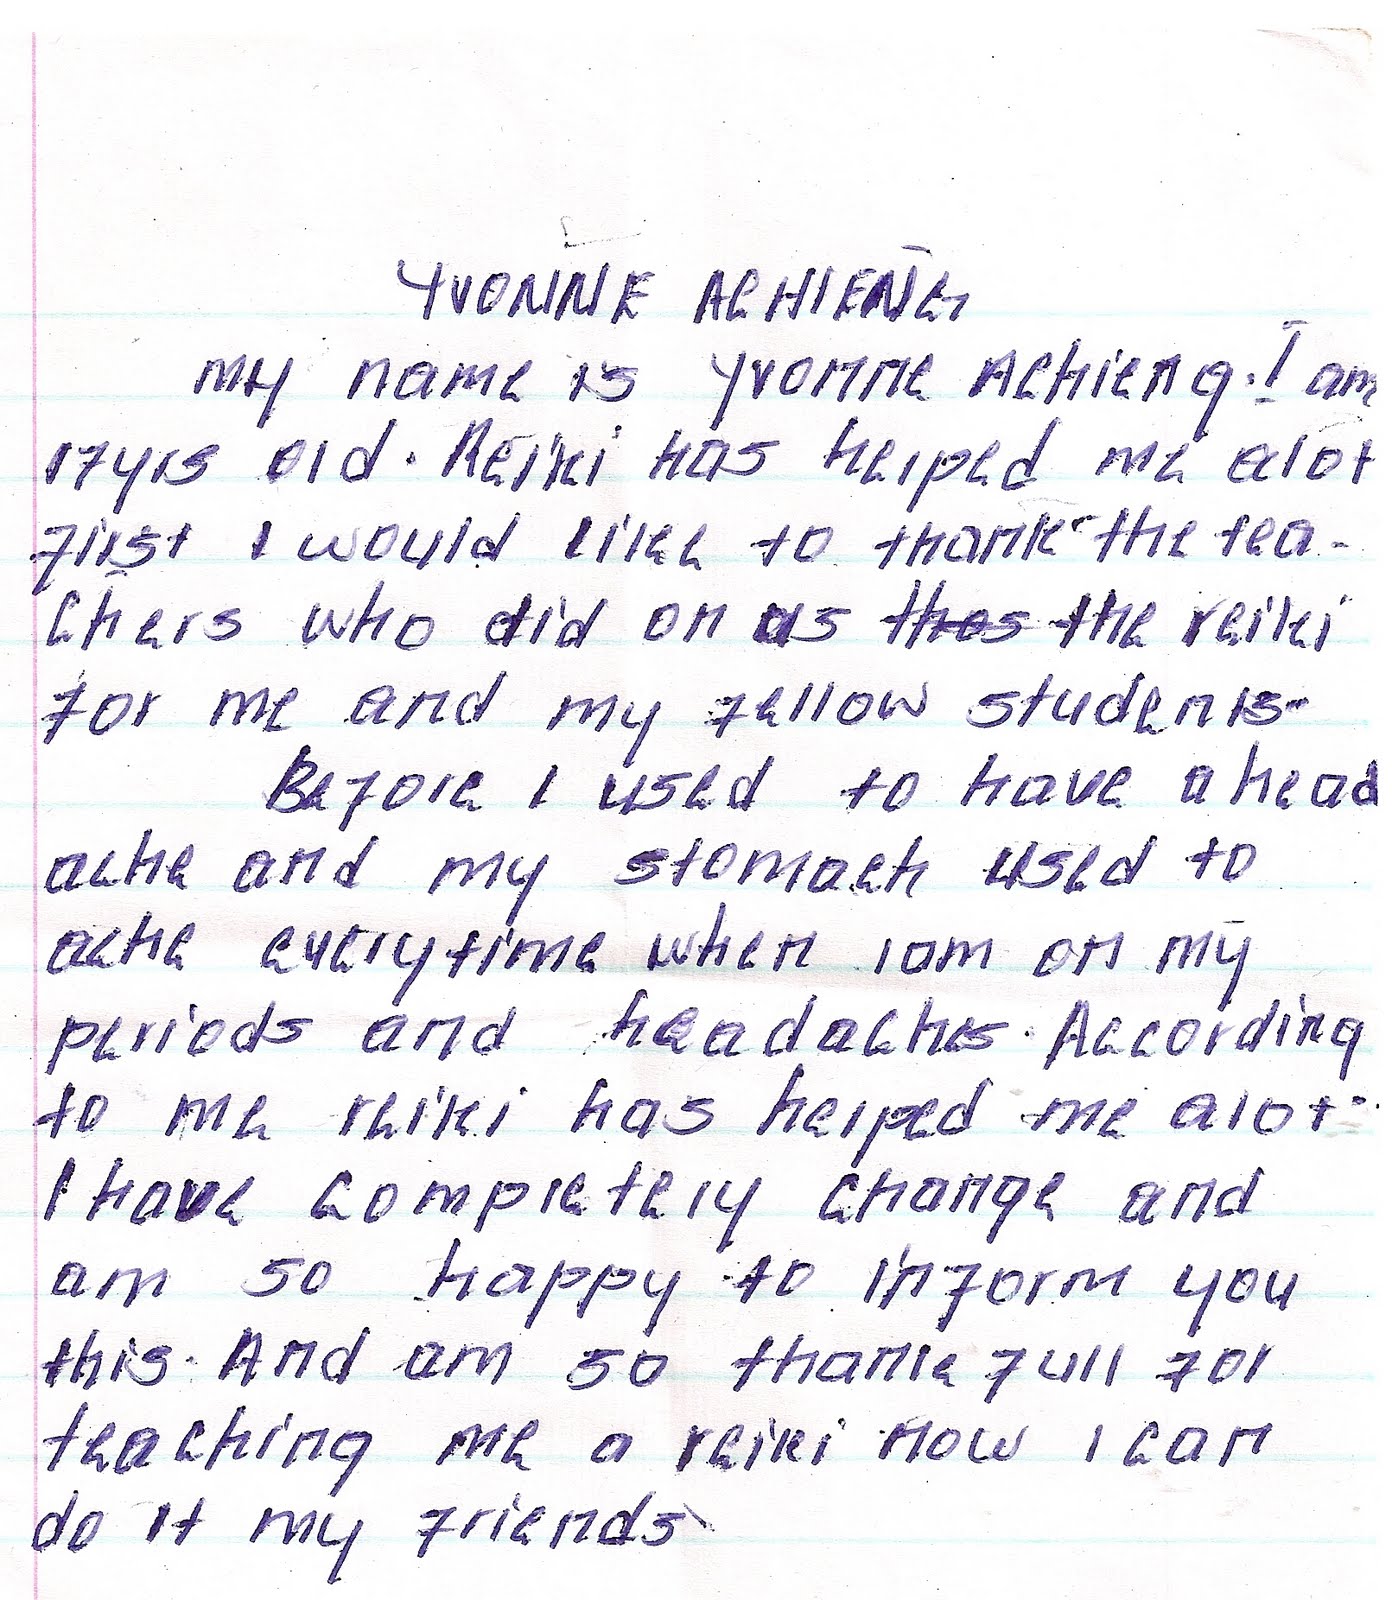 YVONNE ACHIENG
My name is Yvonne Achieng. I am
17yrs old. Reiki has helped me alot
first I would like to thank the tea-
chers who did on us thos the reiki
for me and my fellow students.
Before I used to have a head
ache and my stomach used to
ache everytime when iam on my
periods and headaches. According
to me reiki has helped me alot.
I have completely change and
am so happy to inform you
this. And am so thank full for
teaching me a reiki now i can
do it my friends